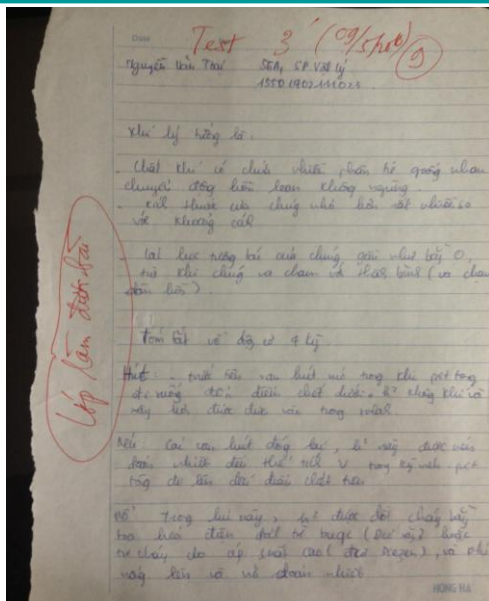 Date
Test 3 (09/5phút)
9
Nguyễn Văn 56A, SP. Vật lý
Khí lý tưởng là:
- Chất khí có chứa nhiều phân tử giống nhau
chuyển động hỗn loạn không ngừng.
- Kích thước của chúng nhỏ hơn rất nhiều so
với khoảng cách
- lực tương tác của chúng gần như bằng 0,
trừ khi chúng va chạm với thành bình (va chạm
đàn hồi).
Tóm tắt về động cơ 4 kỳ
Hút: - trước tiên van hút mở trong khi pít tông
đi xuống điểm chết dưới. h² không khí và
được đưa vào trong
Nén: van hút đóng lại, h² này được nén
đoạn nhiệt đến thể tích V trong kỳ nén pít
tông đi lên đến điểm chết trên
Nổ: Trong lúc này, h² được đốt cháy bằng
tia lửa điện (
tự cháy do áp suất cao (), và khí
nóng lên và nở đoạn nhiệt
Lớp làm được bài
HONG HA